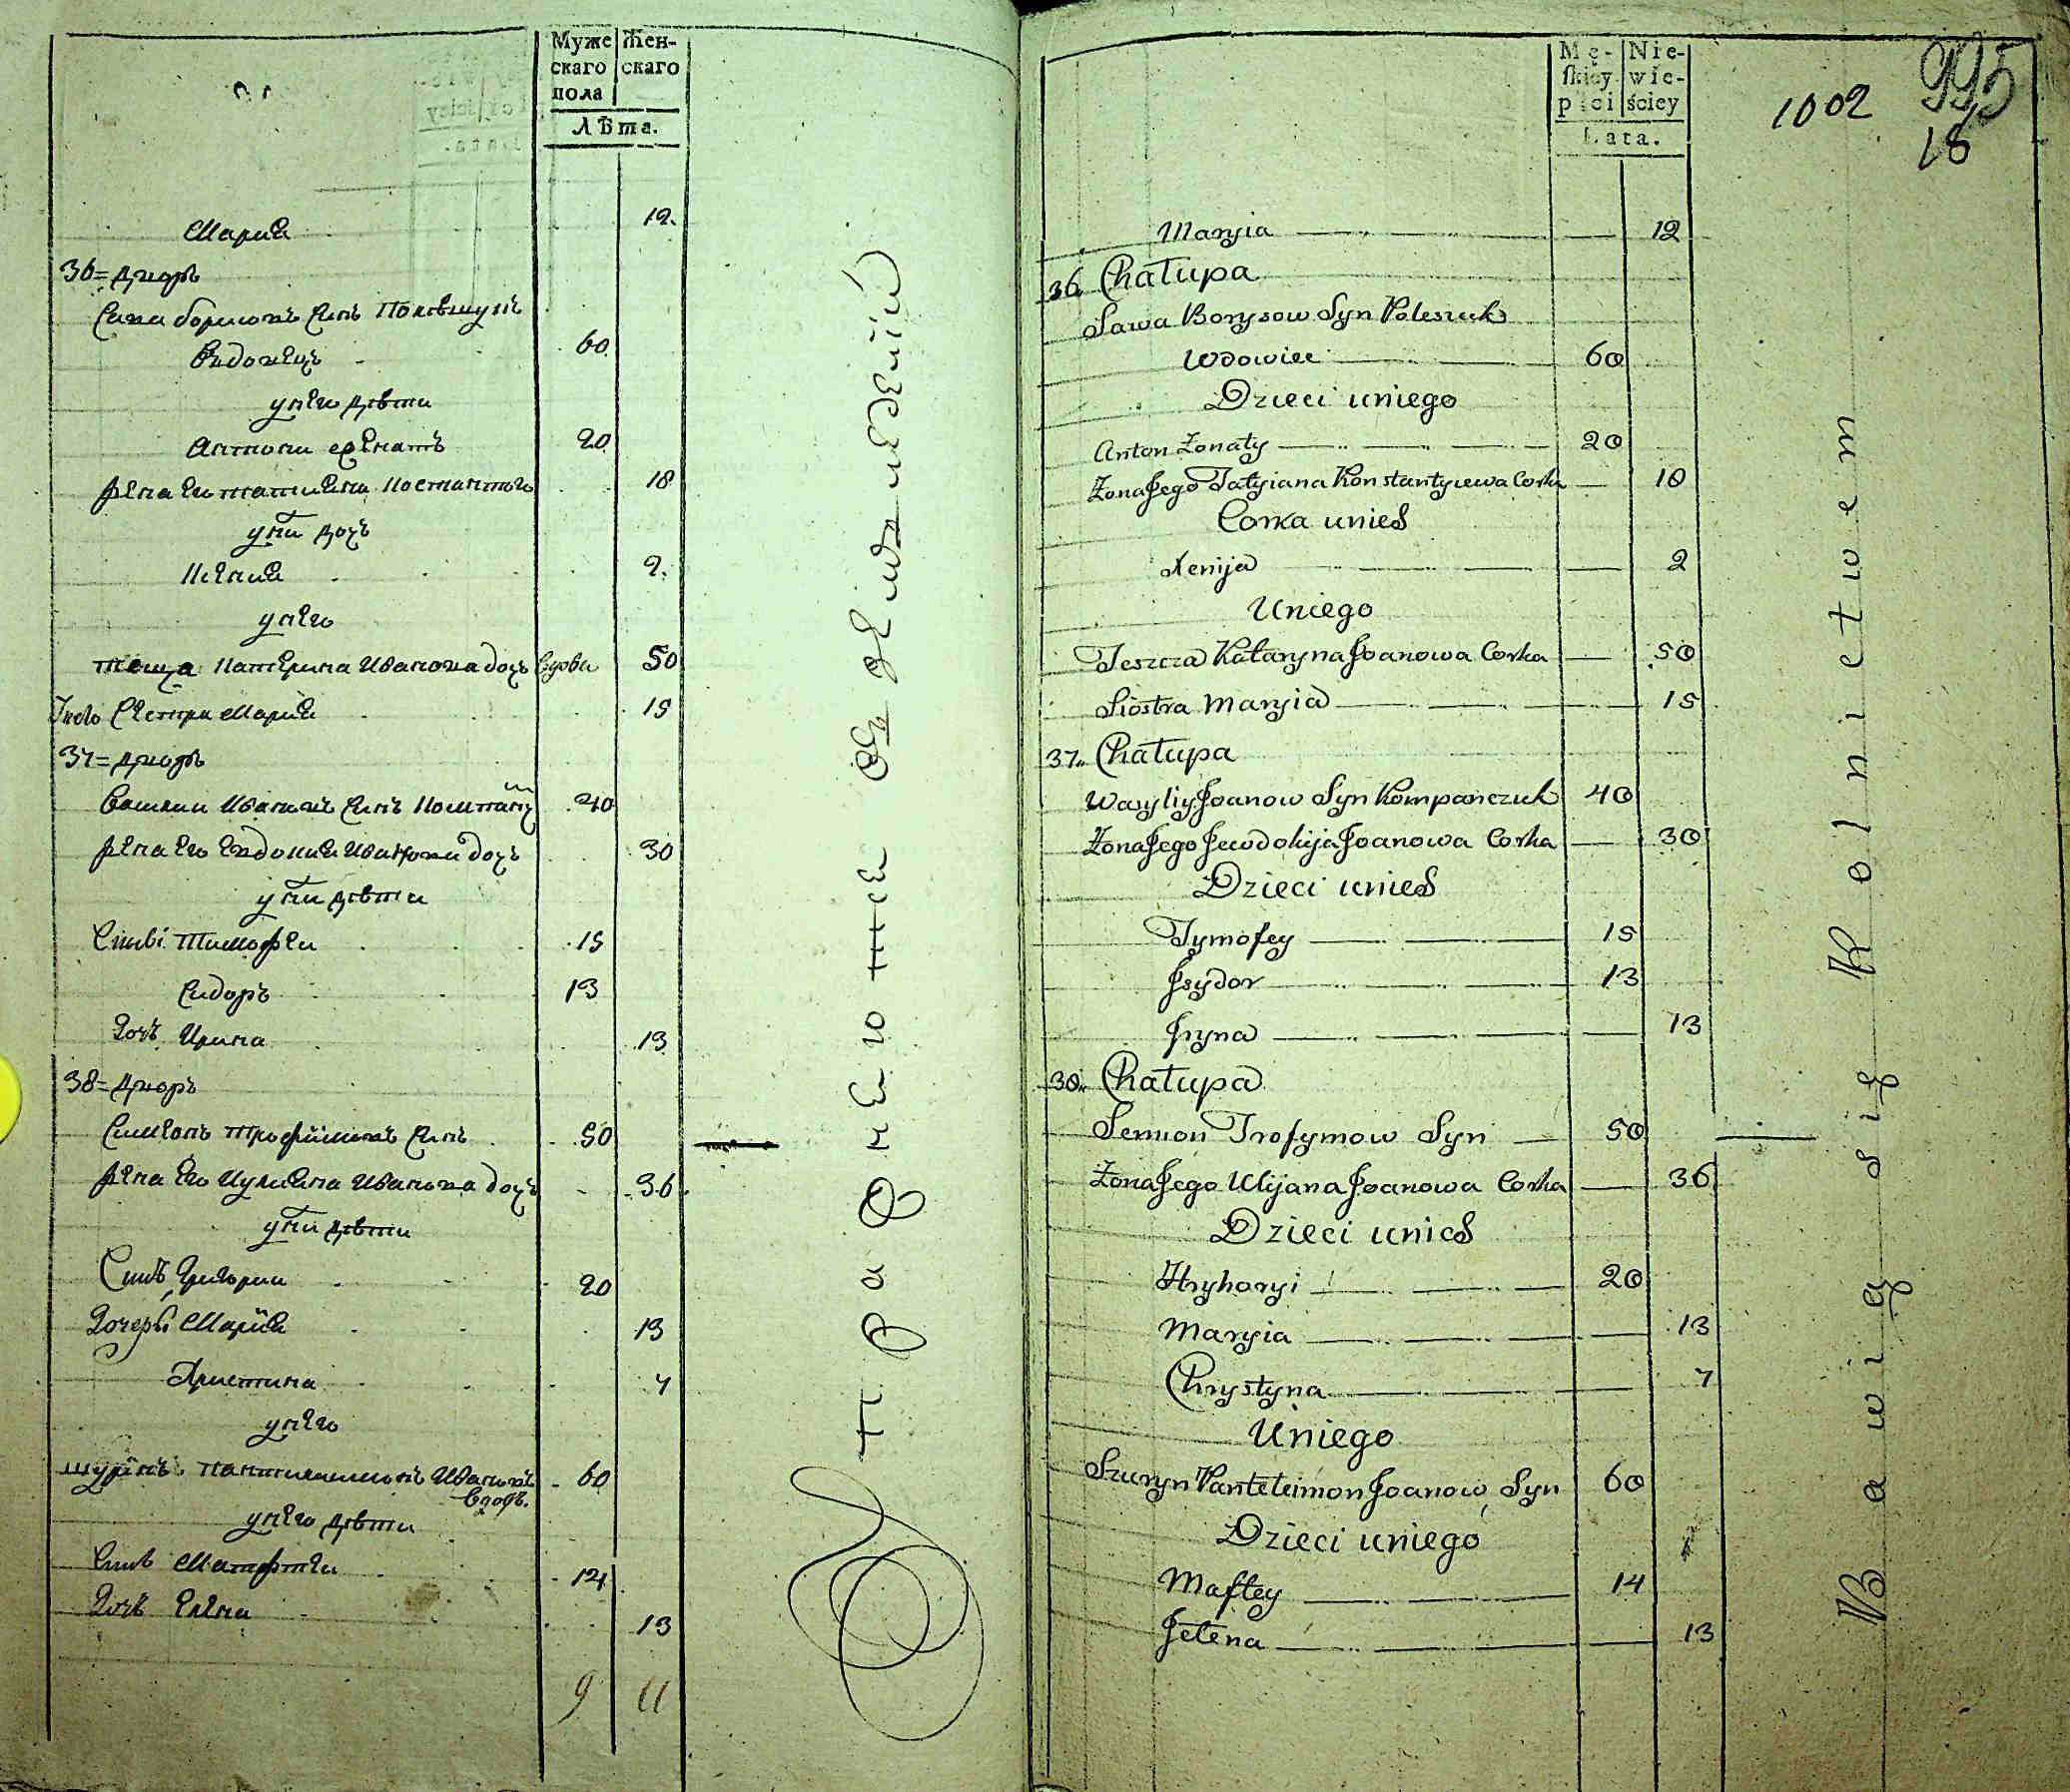 Муже
скаго
пола
Жен-
скаго
Лѣта.
Мария 12.
36= дворъ
Сава борисовъ сынъ Полѣшукъ
Вдовецъ 60
у него дѣти
Антони женатъ 20
жена его татияна костантин 18
у ни дочъ
Ксения 2.
у него
теща катерина Иванова дочъ вдова 50
сестра Мария 15
37= дворъ
Василии Иванов сынъ 40
жена его евдокия Иванова дочъ 30
у ни дѣти
сынві Тимофеи 15
Сидоръ 13
дочъ Ирина 13
38= дворъ
Симеонъ трофимовъ сынъ 50
жена его Иулияна Иванова дочъ 36
у ни дѣти
сынъ Григории 20
дочеры Мария 13
Христина 7
у него
шуринъ пантилимонъ Ивановъ 60
вдовъ.
у него дѣти
сынъ Матфтеи 14
дочъ елена 13
9 11
упражненіе въ земледеліи
Mę-
skiey
płci
Nie-
wie-
ściey
Lata.
1002
995
18
Maryia 12
36,, Chałupa
Sawa Borysow Syn Poleszuk
Wdowiec 60
Dzieci u niego
Anton Żonaty 20
Żona Jego Tatyiana Konstantyiewa Corka 18
Corka u nies
Xenija 2
U niego
Teszcza Kataryna Joanowa Corka 50
Siostra Maryia 15
37,, Chałupa
Wasyliy Joanow Syn Kompanczuk 40
Żona Jego Jewdokija Joanowa Corka 30
Dzieci u nies
Tymofey 15
Jsydor 13
Jryna 13
38,, Chałupa
Semion Trofymow Syn 50
Żona Jego Ulijana Joanowa Corka 36
Dzieci u nies
Hryhoryi 20
Maryia 13
Chrystyna 7
U niego
Szuryn Panteleimon Joanow Syn 60
Dzieci u niego
Maftey 14
Jelena 13
Bawią się Rolnictwem